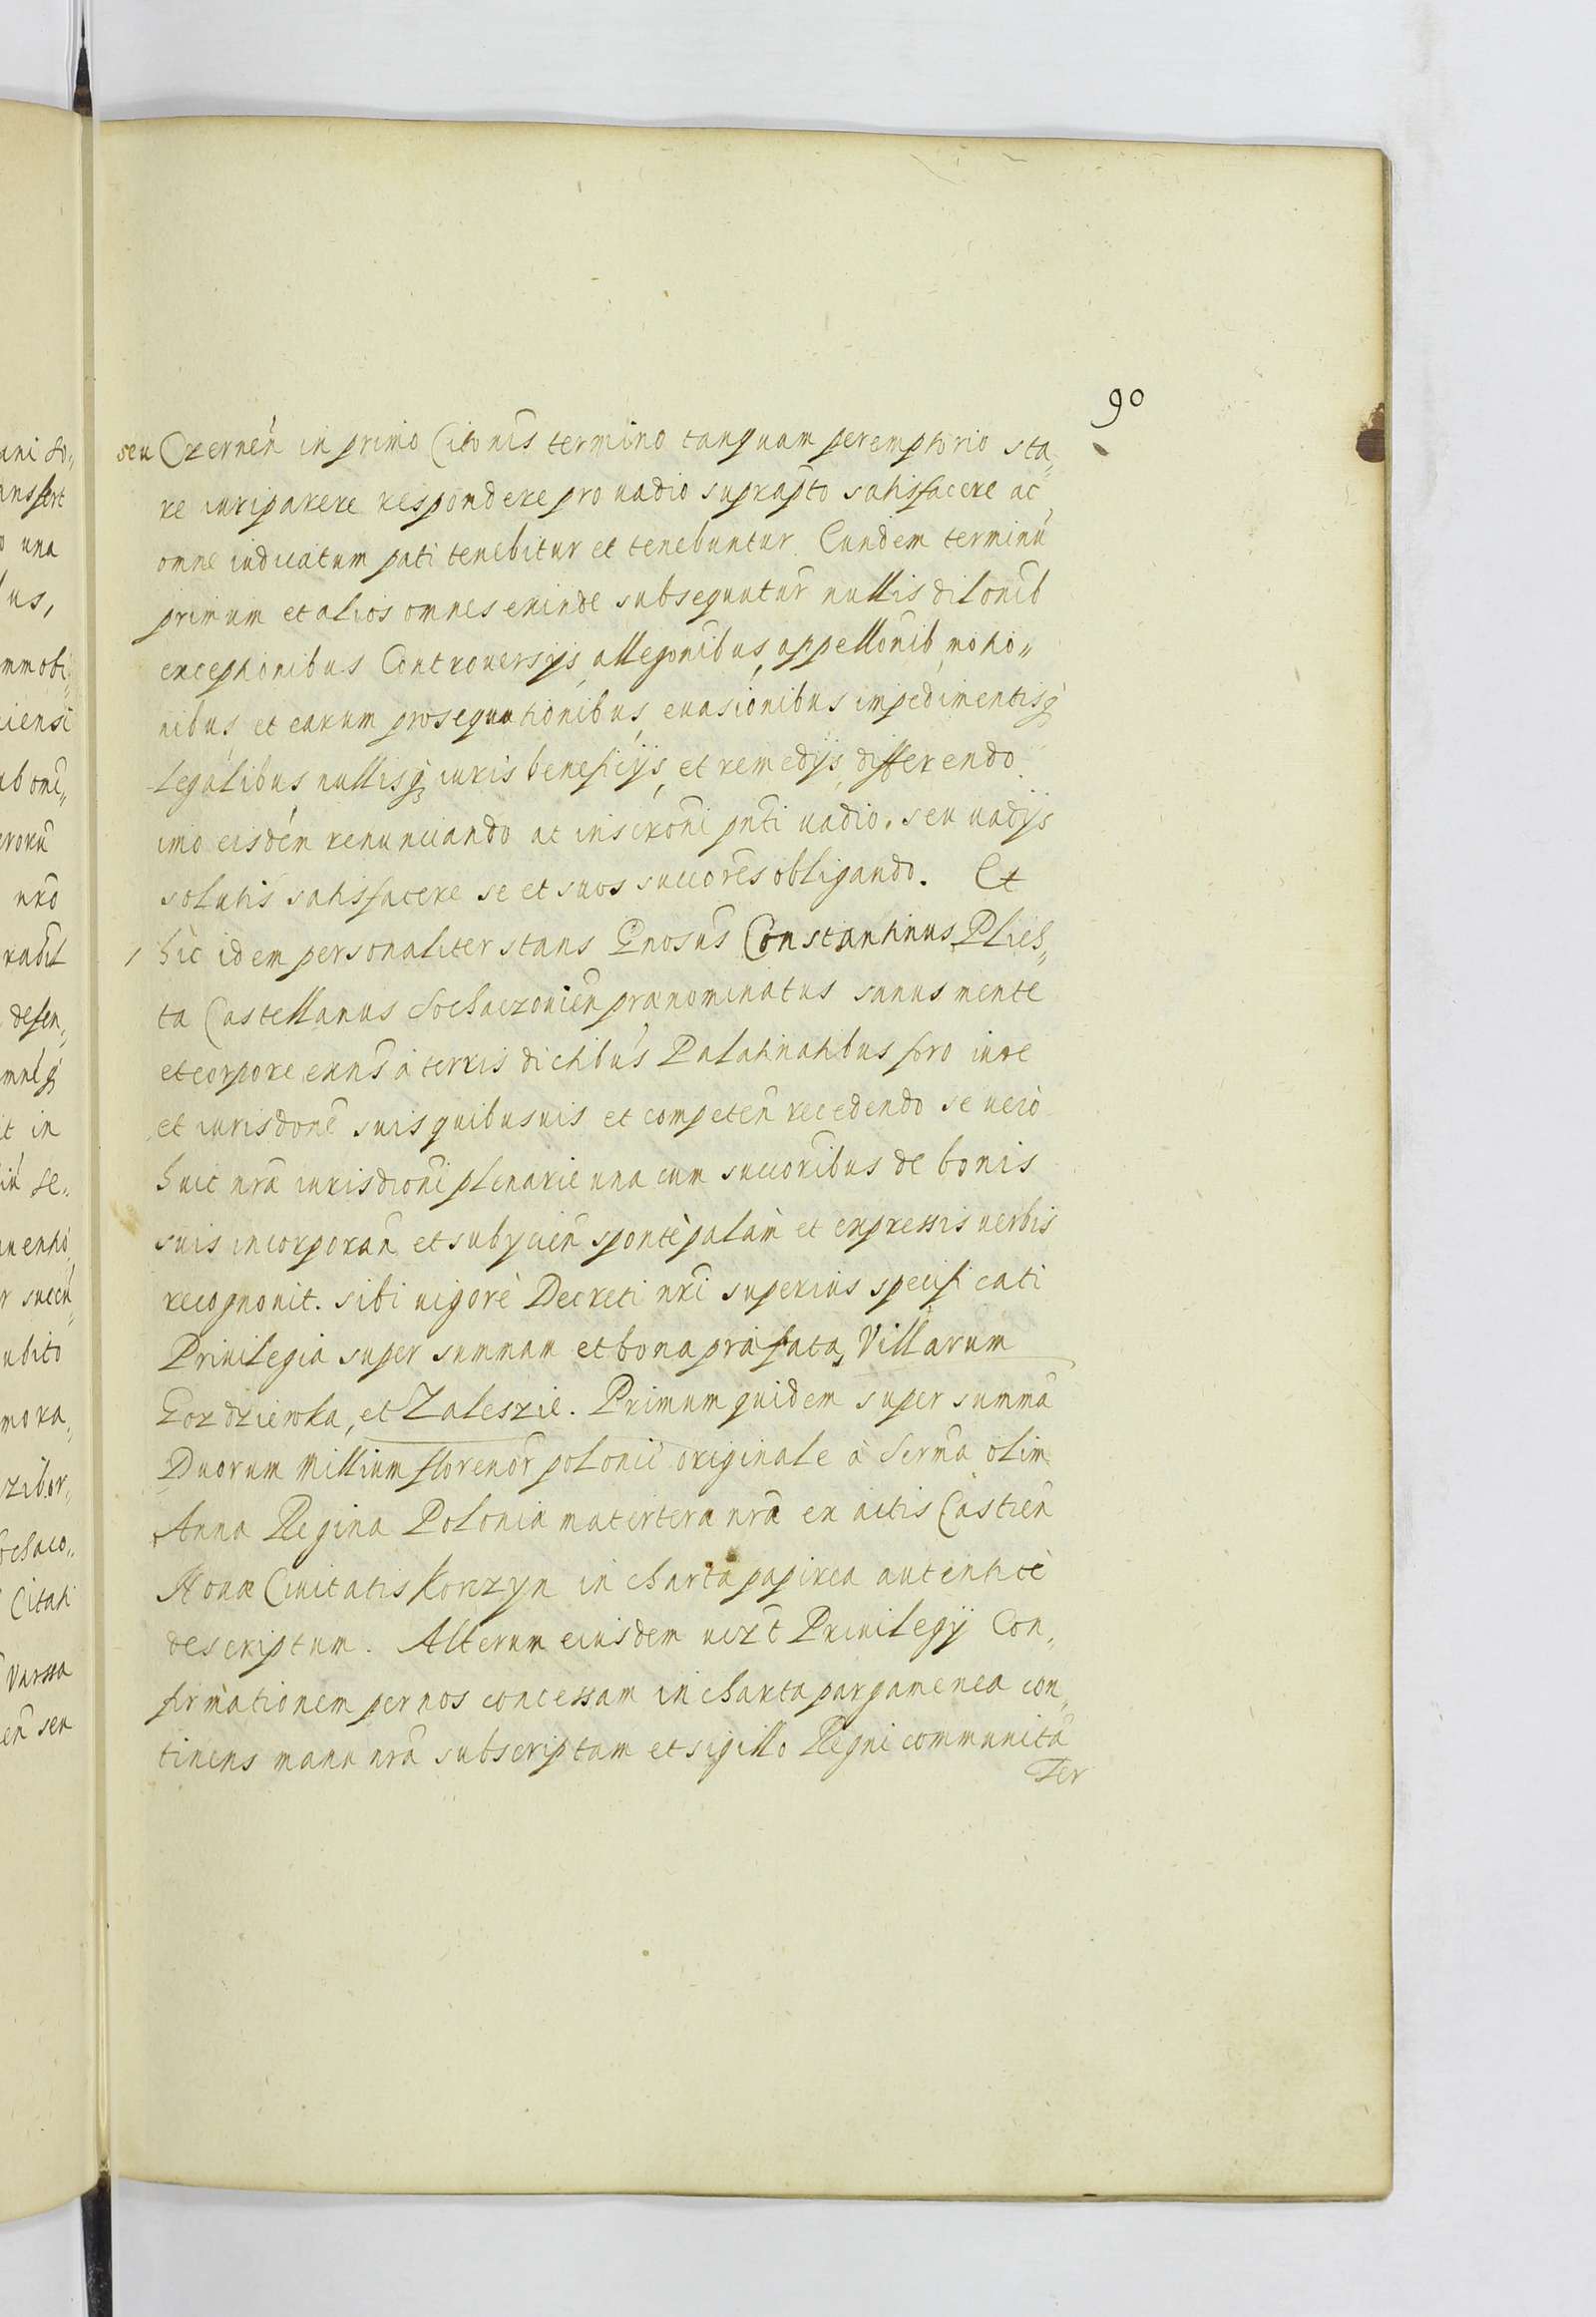 90
seu Czerneń in primo Citonis termino tanquam peremptorio sta„
re iuriparere respondere pro uadio suprapto satisfacere ac
omne iudicatum pati tenebitur et tenebuntur. Eundem terminū
primum et alios omnes exinde subsequutur̃ nullis dilonib
exceptionibus Controuersijs, allegonibus, appellonib, motio„
nibus, et earum prosequutionibus, euasionibus impedimentisq̃
legalibus nullisq̃ iuris beneficijs, et remedijs, differendo.
imo eisdem renunciando ac inscroni pnti uadio. seu uadijs
solutis satisfacere se et suos succores obligando. Et
hic idem personaliter stans Gnosus Constantinus Plich„
ta Castellanus Sochaczouien praenominatus sanus mente
et corpore exns à terris dictibus Palatinatibus foro iure
et iurisdone suis quibusuis et competen recedendo se uerò
huic nrã iurisdioni plenarie una cum succoribus de bonis
suis incorporan et subycien spontè palàm et expressis uerbis
recognouit. sibi uigorè Decreti nri superius specificati
Priuilegia super summam et bona praefata, Villarum
Gozdziewka, et Zaleszie. Primum quidem super summã
Duorum Millium florenor polonic originale à Serma olim
Anna Regina Polonia matertera nrã ex actis Castren
Nouæ Ciuitatis Korczyn in charta papirea autenticè
descriptum. Alterum eiusdem uizt Priuilegij Con„
firmationem per nos concessam in charta pargamenea con„
tinens manu nrã subscriptam et sigillo Regni communitã
Ter
uni so„
ansfert
una
us,
mmobi„
ciensi
ub oni„
nro
defen„
it in
se„
ubito
mo ra„
zibor„
ochaco„
Citati
Varssa
en seu